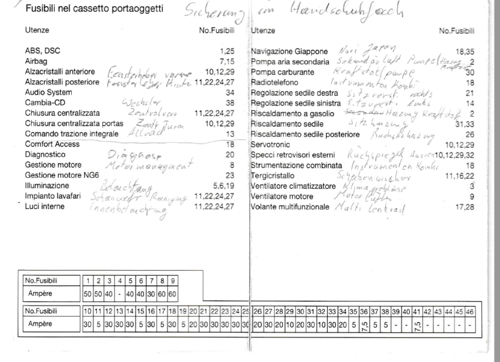 Fusibili nel cassetto portaoggetti Sicherung im Handschuhfach
Utenze No.Fusibili
ABS, DSC 1,25
Airbag 7,15
Alzacristalli anteriore Fensterheber vorne 10,12,29
Alzacristalli posteriore Fensterheber Hinten 11,22,24,27
Audio System 34
Cambia-CD Wechsler 38
Chiusura centralizzata Zentralverr. 11,22,24,27
Chiusura centralizzata portas 10,12,29
Comando trazione integrale Allrad 13
Comfort Access 18
Diagnostico Diagnose 20
Gestione motore Motormanagment 8
Gestione motore NG6 23
Illuminazione Beleuchtung 5,6,19
Impianto lavafari Reinigung 11,22,24,27
Luci interne Innenbeleuchtung 11,22,24,27
Utenze No.Fusibili
Navigazione Giappone Navi Japan 18,35
Pompa aria secondaria Sekundär Luft Pumpe 2
Pompa carburante Kraftstoffpumpe 30
Radiotelefono 18
Regolazione sedile destra Sitzverst. rechts 21
Regolazione sedile sinistra Sitzverst. links 14
Riscaldamento a gasolio Heizung Kraftstoff 2
Riscaldamento sedile Sitzheizung 31,33
Riscaldamento sedile posteriore 26
Servotronic 10,12,29
Specci retrovisori esterni Rückspiegel Aussen 10,12,29,32
Strumentazione combinata Instrumenten Kombi 18
Tergicristallo Scheibenwischer 11,16,22
Ventilatore climatizzatore Klima 3
Ventilatore motore Motor Lüfter 9
Volante multifunzionale Multi Lenkrad 17,28
No.Fusibili 1 2 3 4 5 6 7 8 9
Ampère 50 50 40 - 40 40 30 60 60
No.Fusibili 10 11 12 13 14 15 16 17 18 19 20 21 22 23 24 25 26 27 28 29 30 31 32 33 34 35 36 37 38 39 40 41 42 43 44 45 46
Ampère